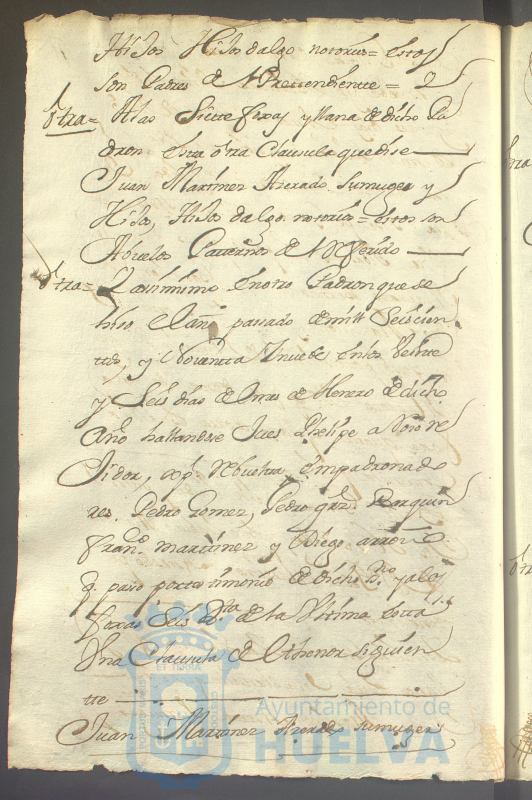 Hijos Hijos dalgo notorios = estos
son Padres de el Pretendiente =
otra = A las Siete foxas y llana de dicho Pa
dron esta otra Clausula que dise
Juan Martinez Herrado. Su muger y
Hijos, Hijos dalgo notorios = estos son
Abuelos Paternos de el Referido
otra = Y asimismo en otro Padron que se
hiso el año pasado de mill Seiscien
ttos, y Noventta y nueve en los Veinte
y Seis dias de el mes de Henero de dicho
Año hallandose Jues Phelipe
Jidor, empadronado
res. Pedro Gomez, Pedro
Franco. Martinez y Diego
p. paso por testimonio de dicho y a las
foxas Seis de la Ultima
Una Clausula de el thenor siguien
tte
Juan Martinez Herrado su muger
Ayuntamiento de
HUELVA